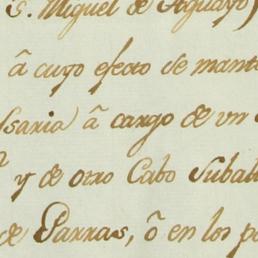 S. Miguel de Aguayo
â cuyo efecto de mant
saria â cargo de un
y de otro Cabo Subal
de Parras, ô en los p